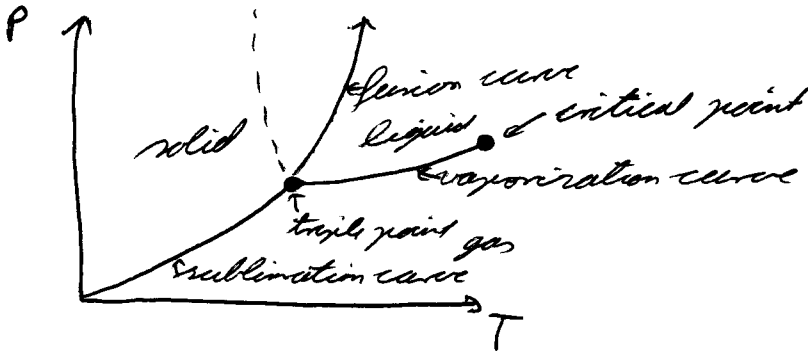 P
fusion curve
solid
liquid
critical point
vaporization curve
triple point
gas
sublimation curve
T